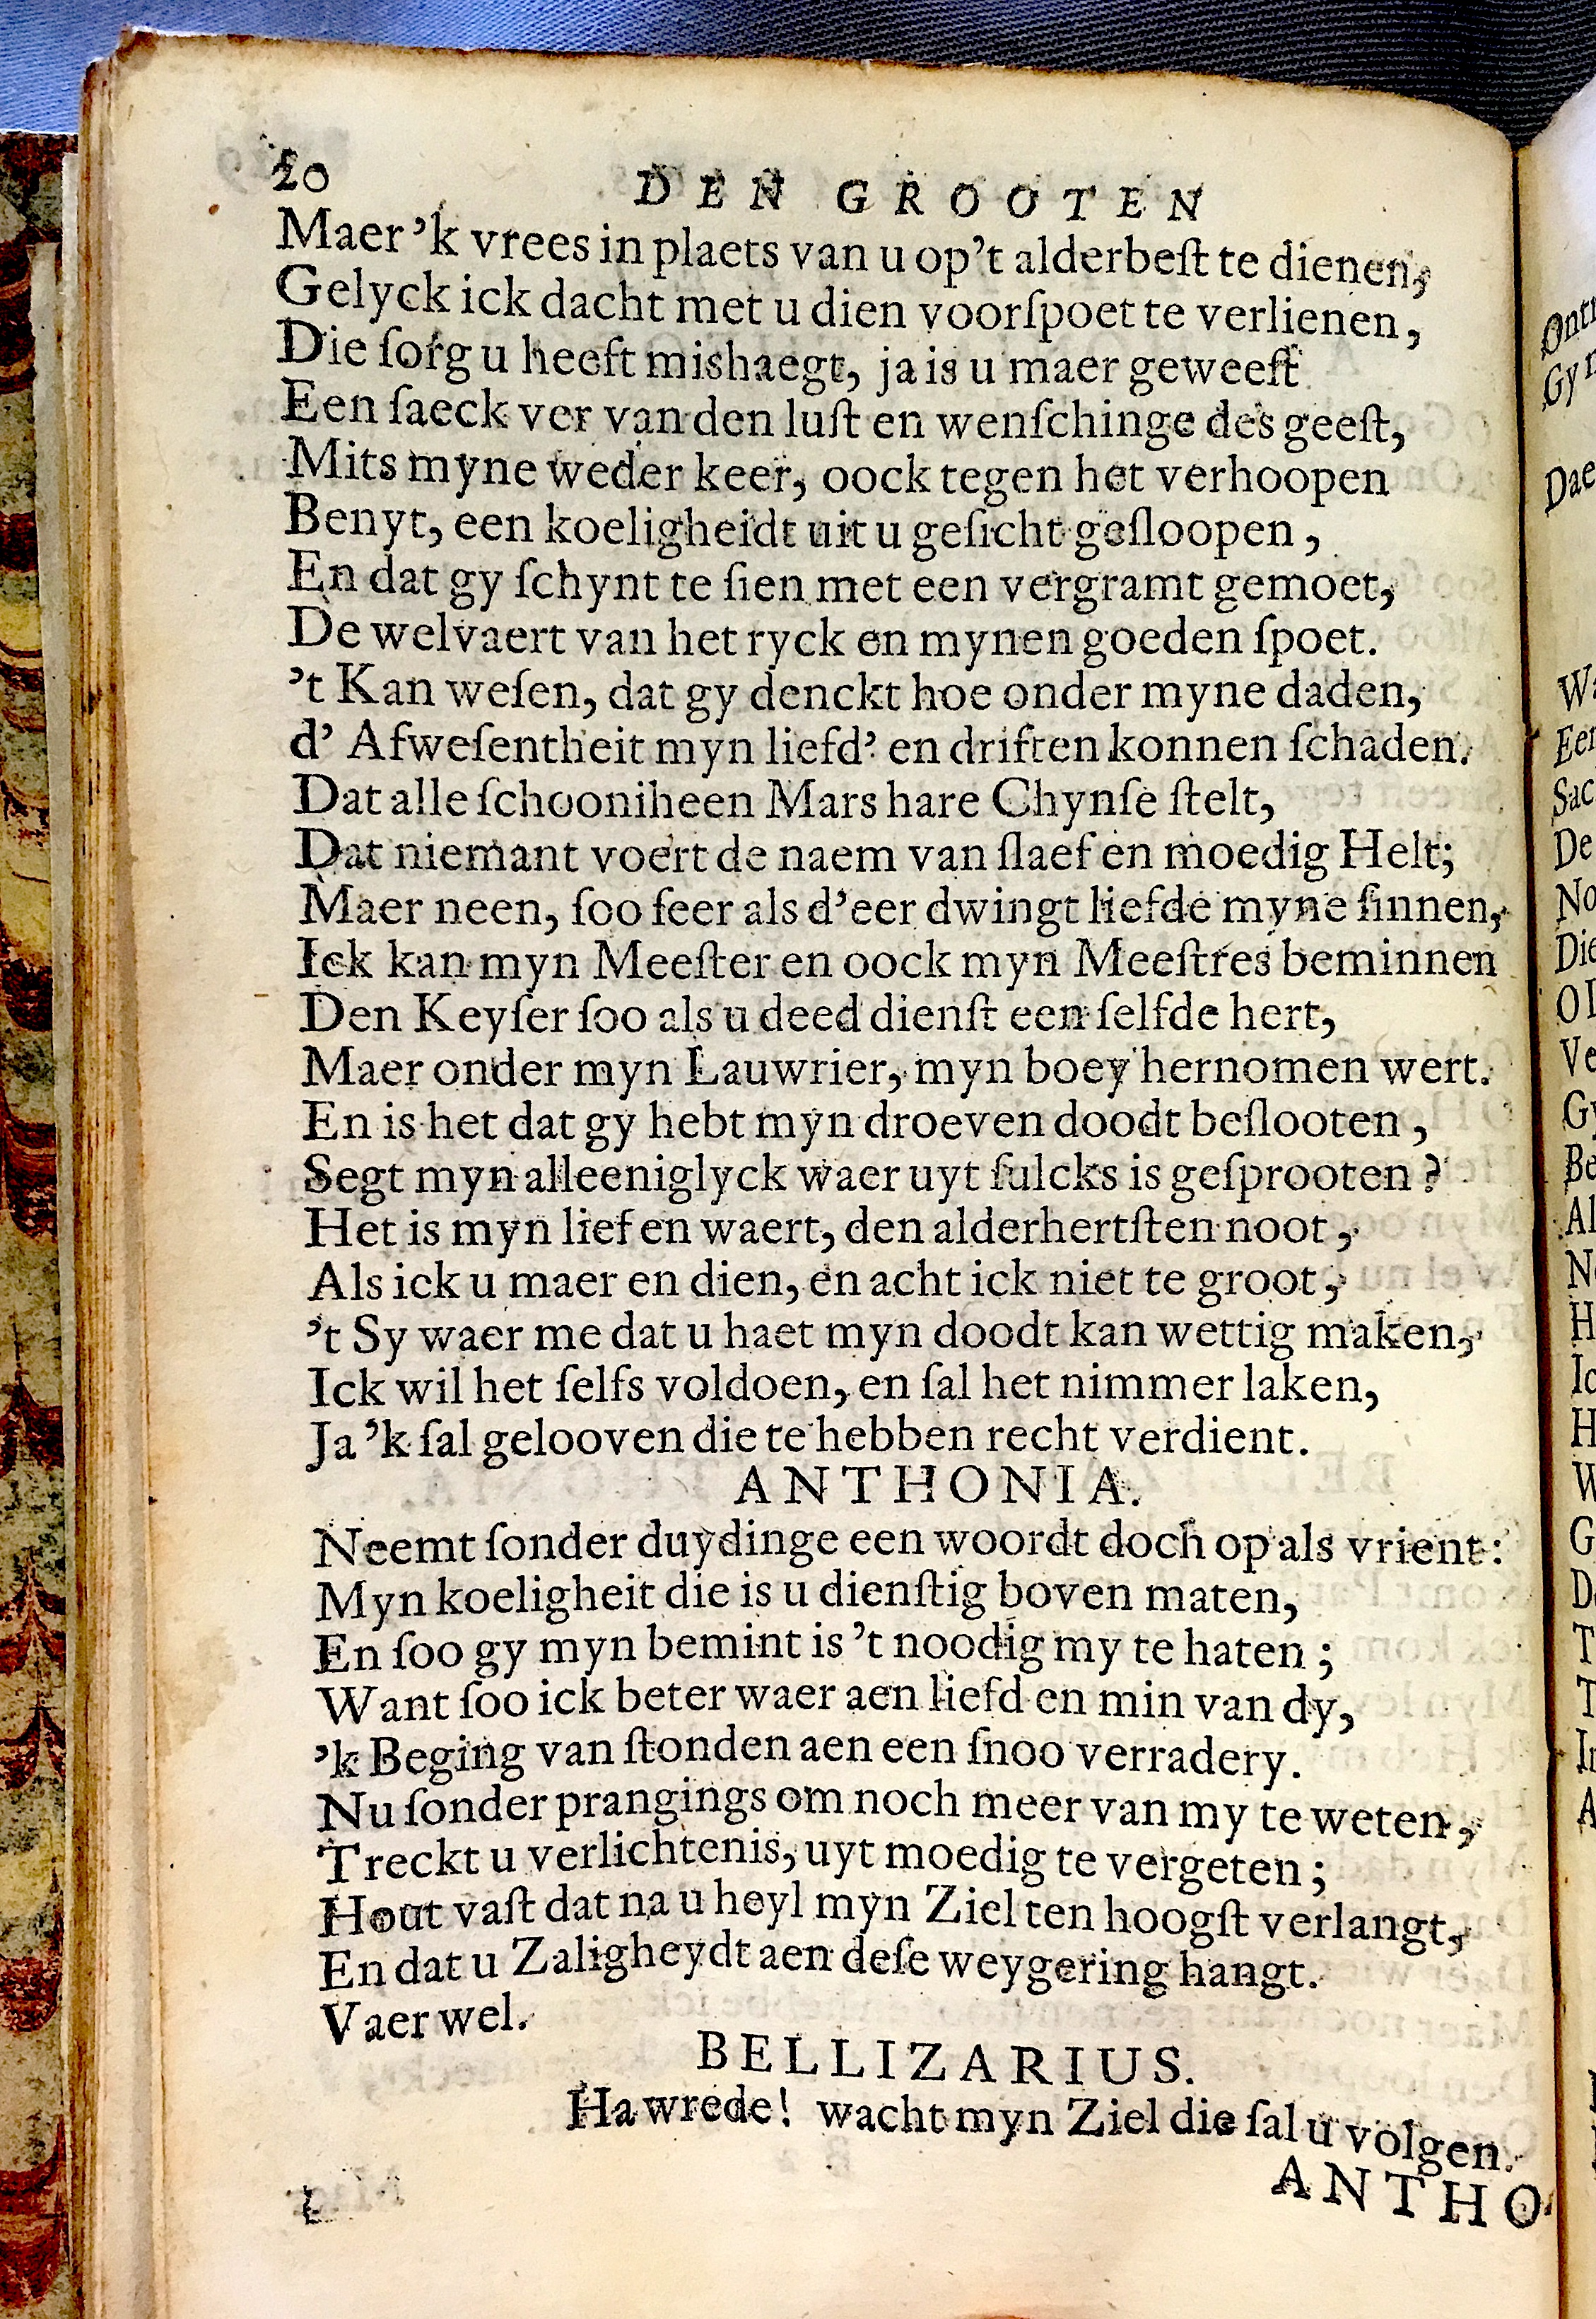 20 DEN GROOTEN
Maer 'k vrees in plaets van u op't alderbeſt te dienen,
Gelyck ick dacht met u dien voorſpoet te verlienen,
Die ſorg u heeft mishaegt, ja is u maer geweeſt
Een ſaeck ver van den luſt en wenſchinge des geeſt,
Mits myne weder keer, oock tegen het verhoopen
Benyt, een koeligheidt uit u geſicht geſloopen,
En dat gy ſchynt te ſien met een vergramt gemoet,
De welvaert van het ryck en mynen goeden ſpoet.
't Kan weſen, dat gy denckt hoe onder myne daden,
d' Afweſentheit myn liefd' en driften konnen ſchaden.
Dat alle ſchooniheen Mars hare Chynſe ſtelt,
Dat niemant voert de naem van ſlaef en moedig Helt;
Maer neen, ſoo ſeer als d'eer dwingt liefde myne ſinnen,
Ick kan myn Meeſter en oock myn Meeſtres beminnen
Den Keyſer ſoo als u deed dienſt een ſelfde hert,
Maer onder myn Lauwrier, myn boey hernomen wert.
En is het dat gy hebt myn droeven doodt beſlooten,
Segt myn alleeniglyck waer uyt ſulcks is geſprooten?
Het is myn lief en waert, den alderhertſten noot,
Als ick u maer en dien, en acht ick niet te groot,
't Sy waer me dat u haet myn doodt kan wettig maken,
Ick wil het ſelfs voldoen, en ſal het nimmer laken,
Ja 'k ſal gelooven die te hebben recht verdient.
ANTHONIA.
Neemt ſonder duydinge een woordt doch op als vrient:
Myn koeligheit die is u dienſtig boven maten,
En ſoo gy myn bemint is 't noodig my te haten;
Want ſoo ick beter waer aen liefd en min van dy,
'k Beging van ſtonden aen een ſnoo verradery.
Nu ſonder prangings om noch meer van my te weten,
Treckt u verlichtenis, uyt moedig te vergeten;
Hout vaſt dat na u heyl myn Ziel ten hoogſt verlangt,
En dat u Zaligheydt aen deſe weygering hangt.
Vaer wel.
BELLIZARIUS.
Ha wrede! wacht myn Ziel die ſal u volgen.
ANTHO-
Ont
Gy
Dae
Wa
Een
Sac
De
No
Die
Ve
Gy
Be
Al
H
Ic
H
W
G
T
T
A